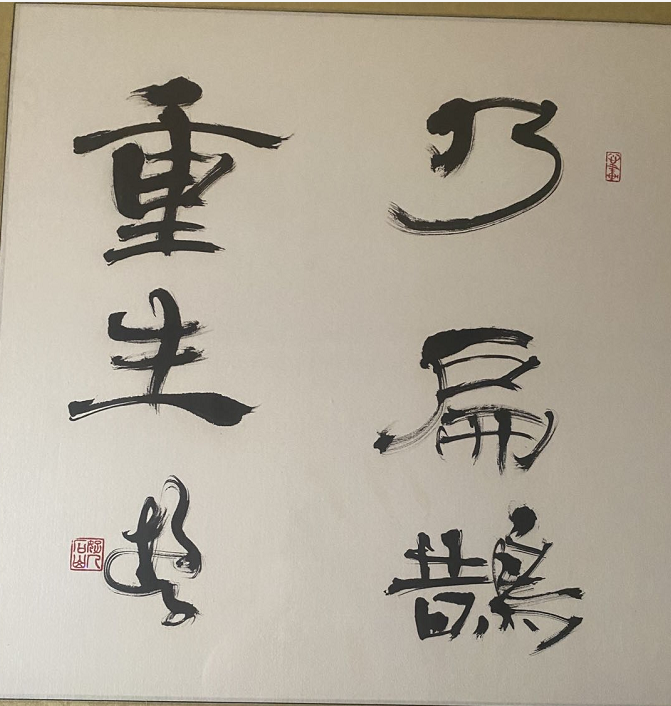 乃扁鵲
重生也